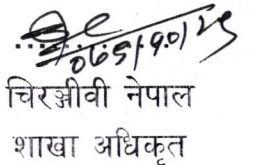 ०७५।१०।२५
चिरञ्जीवी नेपाल
शाखा अधिकृत